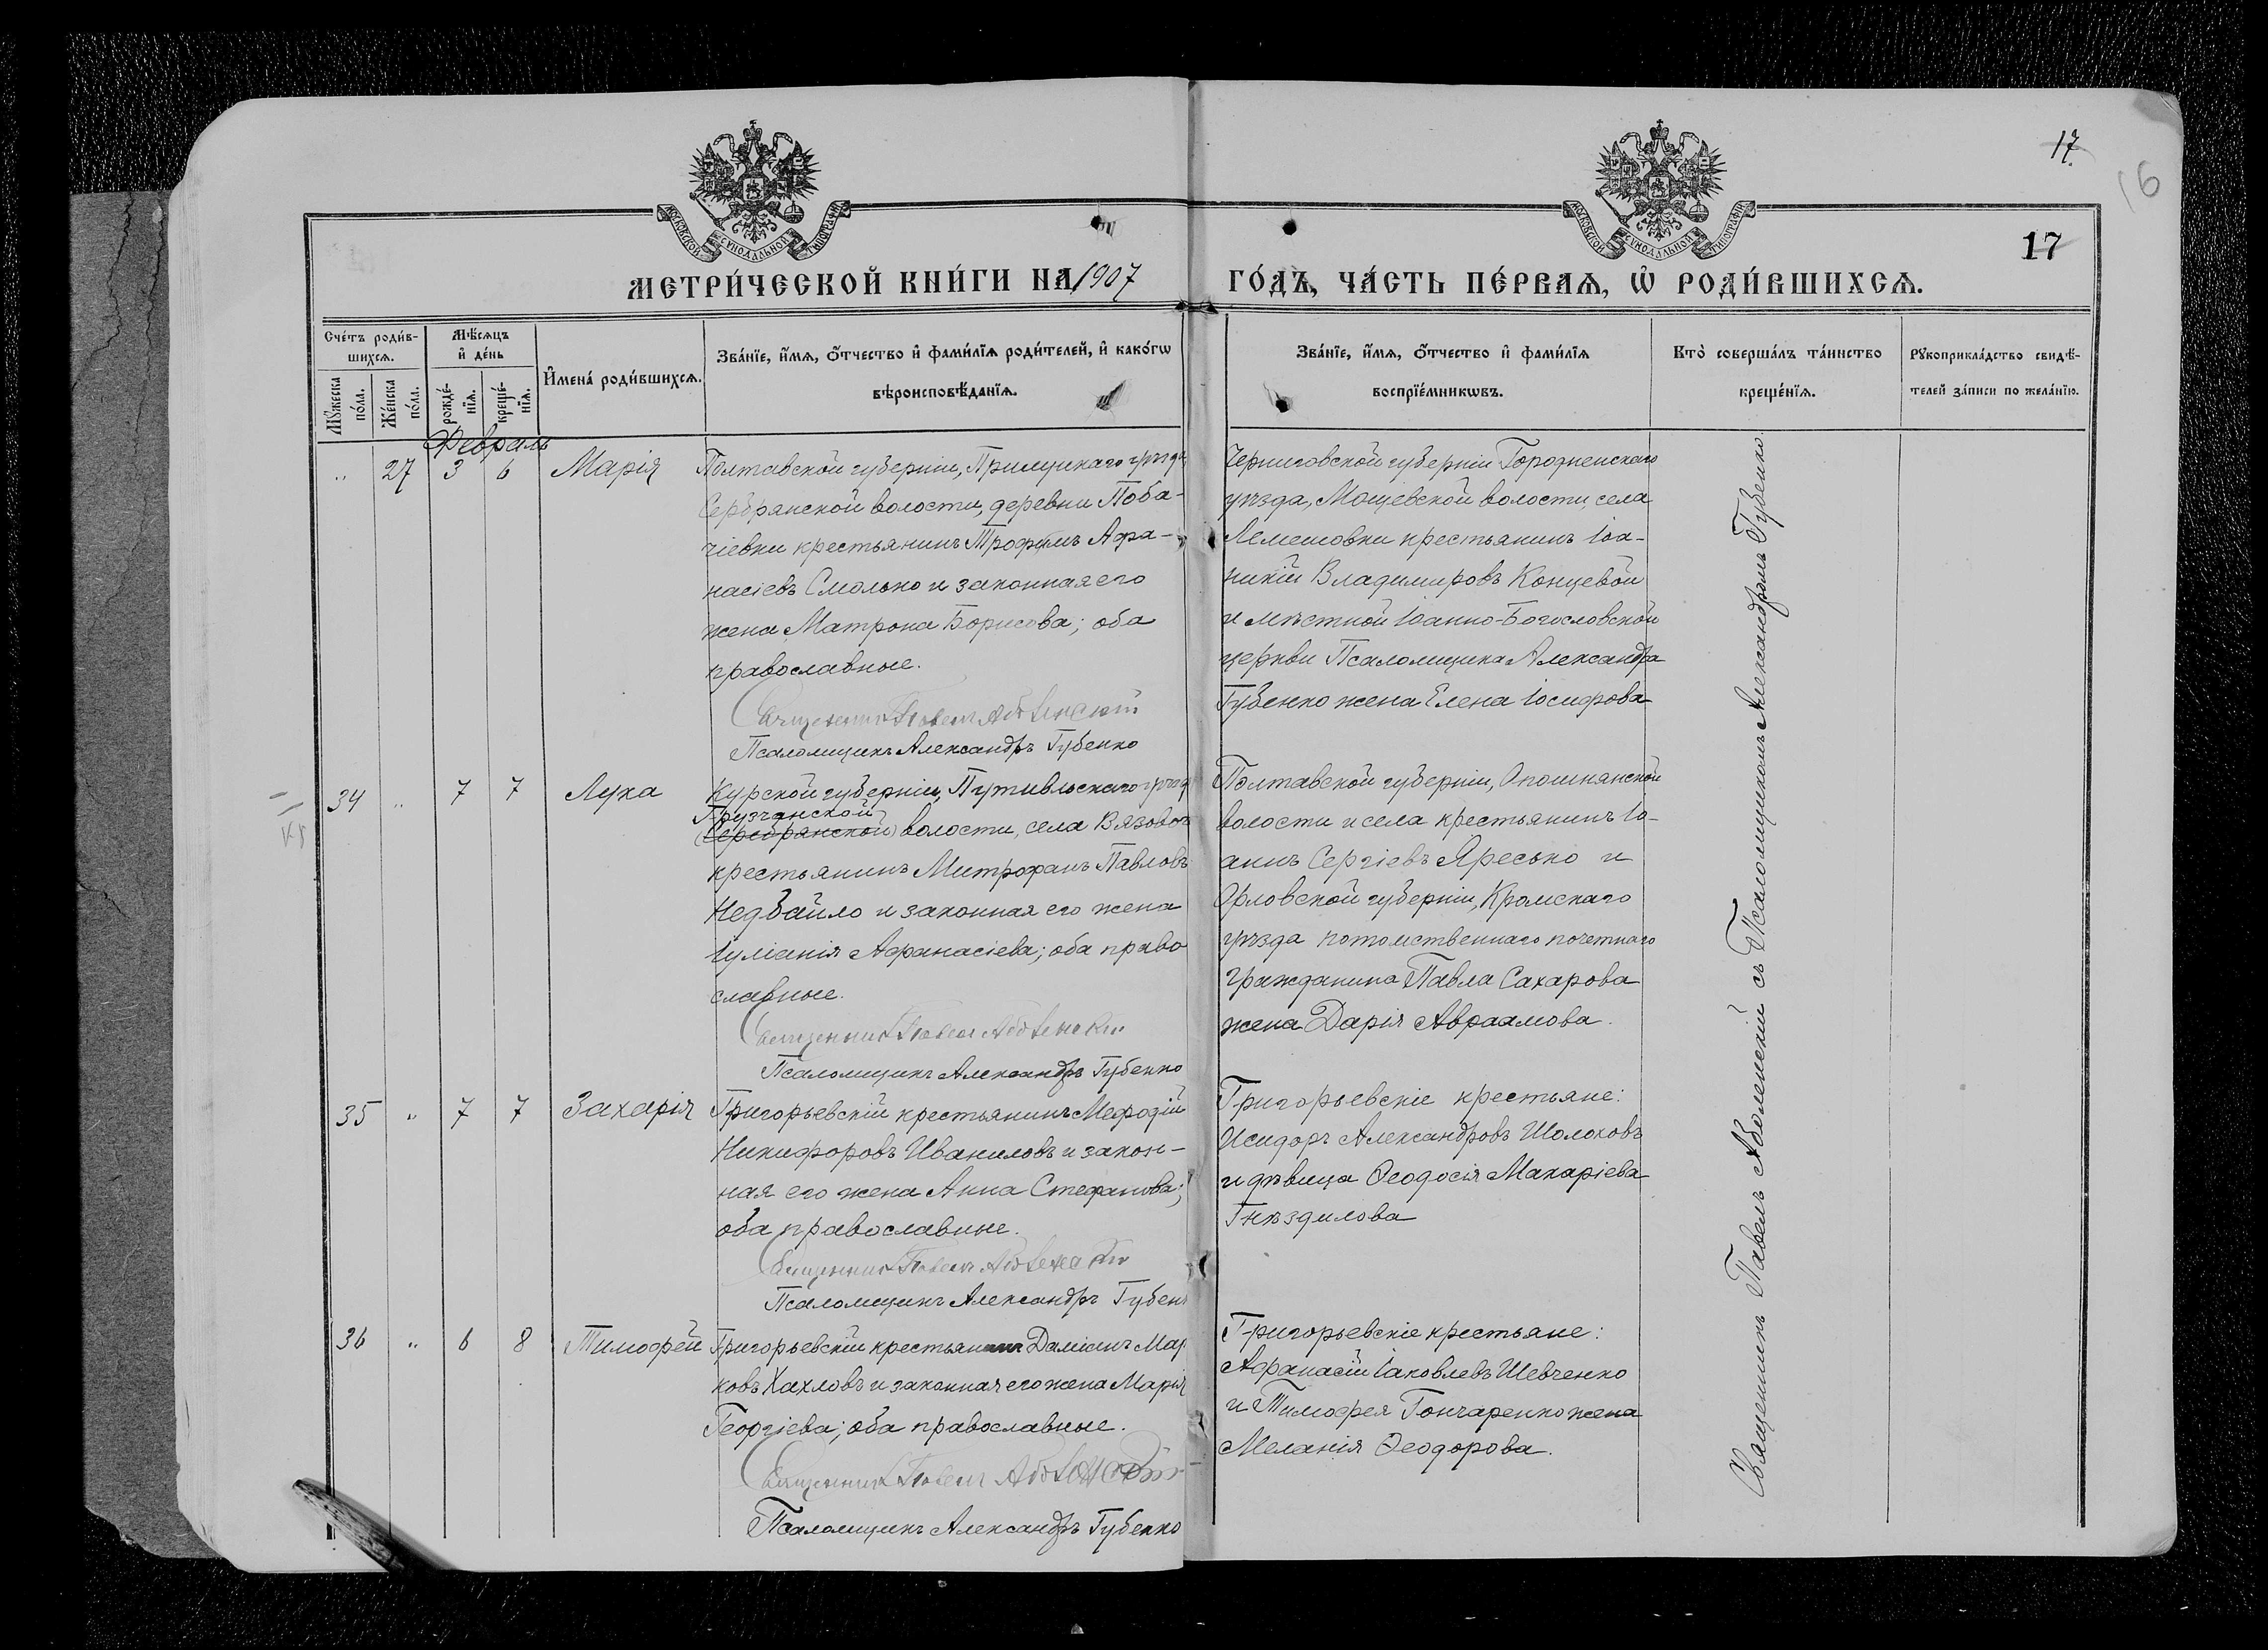 17
16
17
МЕТРИ́ЧЕСКОЙ КНИ́ГИ НА 1907 ГО́ДЪ, ЧА́СТЬ ПЕ́РВАЯ, Ѡ҆ РОДИ́ВШИХСЯ.
МОСКОВСКОЙ СУНОДАЛЬНОЙ ТИПОГРАФІИ
МОСКОВСКОЙ СУНОДАЛЬНОЙ ТИПОГРАФІИ
Сче́тъ роди́в-
шихся.
Мꙋ́жеска
по́ла.
Же́нска
по́ла.
Мѣ́сяцъ
и҆ де́нь
рожде́-
нїя.
креще́-
нїя.
И҆мена̀ роди́вшихся.
Зва́нїе, и҆́мя, ѻ҆́тчество и҆ фами́лїя роди́телей, и҆ како́гѡ
вѣроисповѣ́данїя.
Зва́нїе, и҆́мя, ѻ҆́тчество и҆ фами́лїя
воспрїе́мникѡвъ.
Кто̀ соверша́лъ та́инство
креще́нїя.
Рꙋкоприкла́дство свидѣ́-
телей за́писи по жела́нїю.
Февраль
" 27 3 6 Марія
Полтавской губерніи, Прилуцкаго уѣзда
Сербрянской волости, деревни Поба-
чіевки крестьянинъ Трофимъ Афа-
насіевъ Смолько и законная его
жена Матрона Борисова; оба
православные.
Священникъ Павелъ Аболенскій
Псаломщикъ Александръ Губенко
Черниговской губерніи Городненскаго
уѣзда, Мощевской волости, села
Лемешовки крестьянинъ Іоа-
никій Владимировъ Концевой
и мѣстной Іоанно-Богословской
церкви Псаломщика Александра
Губенко жена Елена Іосифова
34 " 7 7 Лука
Курской губерніи, Путивльскаго уѣзд
Грузчанской
(Серебрянской) волости, села Вязовог
крестьянинъ Митрофанъ Павловъ
Недбайло и законная его жена
Іуліанія Афанасіева; оба право
славные.
Священникъ Павелъ Аболенскій
Псаломщикъ Александръ Губенко
Полтавской губерніи, Опошнянской
волости и села крестьянинъ Іо-
аннъ Сергіевъ Яресько и
Орловской губерніи, Кромскаго
уѣзда потомственнаго почетнаго
гражданина Павла Сахарова
жена Дарія Авраамова.
35 " 7 7 Захарія
Григорьевскій крестьянинъ Мефодій
Никифоровъ Иваниловъ и закон-
ная его жена Анна Стефанова;
оба православные.
Священникъ Павелъ Аболенскій
Псаломщикъ Александръ Губен
Григорьевскіе крестьяне:
Исидоръ Александровъ Шолоховъ
и дѣвица Ѳеодосія Макаріева
Гнѣздилова
36 " 6 8 Тимофей
Григорьевскій крестьянинъ Даміанъ Мар
ковъ Хахловъ и законная его жена Марія
Георгіева; оба православные.
Священникъ Павелъ Аболенскій
Псаломщикъ Александръ Губенко
Григорьевскіе крестьяне:
Афанасій Іаковлевъ Шевченко
и Тимофея Гончаренко жена
Меланія Ѳеодорова.
Священникъ Павелъ Аболенскій съ Псаломщикомъ Александромъ Губенко.